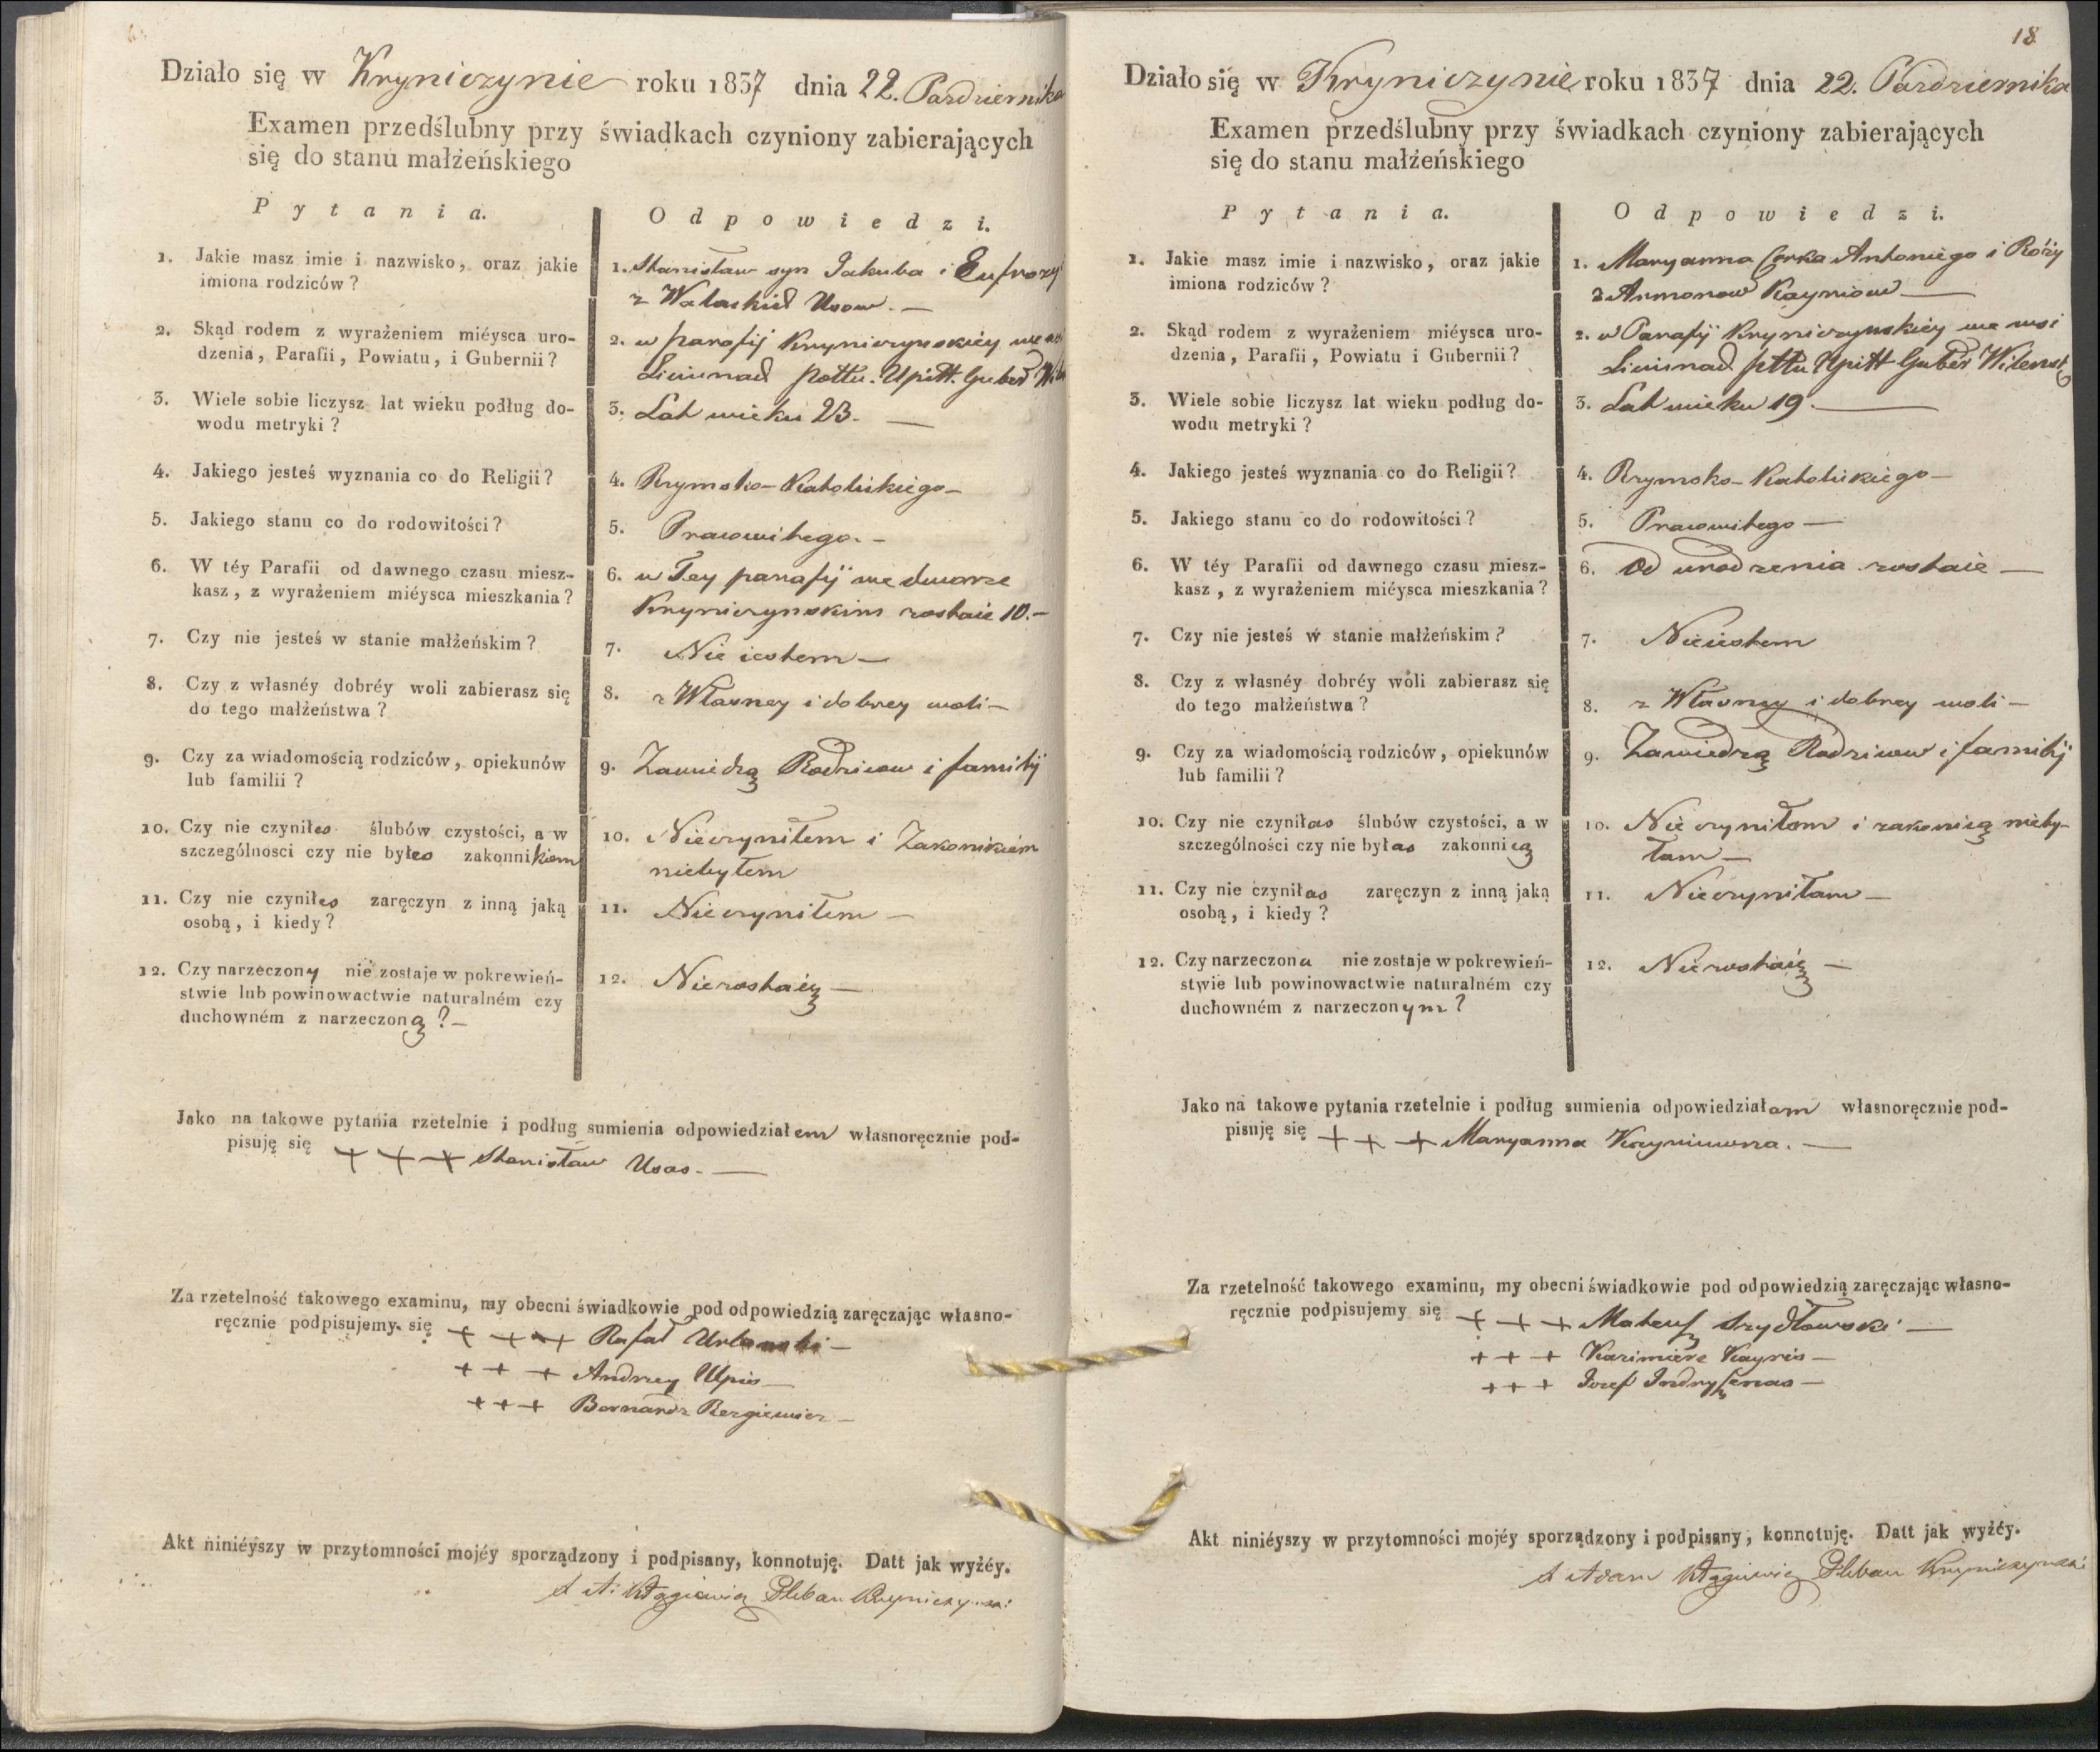 Działo się w Kryniczynie roku 1837 dnia 22. Pazdziernika
Examen przedślubny przy świadkach czyniony zabierających
się do stanu małżeńskiego
Pytania.
Odpowiedzi.
1. Jakie masz imie i nazwisko, oraz jakie
imiona rodziców?
1. Stanisław syn Jakuba i Eufrozy
z Wałaskich Usow. —
2. Skąd rodem z wyrażeniem miéysca uro-
dzenia, Parafii, Powiatu, i Gubernii?
2. w parafij Kryniczynskiéy we wsi
Liciunach pottu. Upitt. Guber Wil
3. Wiele sobie liczysz lat wieku podług do-
wodu metryki?
3. Lat wieku 23. —
4. Jakiego jesteś wyznania co do Religii?
4. Rzymsko-Katolickiego —
5. Jakiego stanu co do rodowitości?
5. Pracowitego. —
6. W téy Parafii od dawnego czasu miesz-
kasz, z wyrażeniem miéysca mieszkania?
6. w Tey parafij we dworze
Kryniczynskim zostaie 10. —
7. Czy nie jesteś w stanie małżeńskim?
7. Nie iestem —
8. Czy z własnéy dobréy woli zabierasz się
do tego małżeństwa?
8. z Własney i dobrey woli —
9. Czy za wiadomością rodziców, opiekunów
lub familii?
9. Zawiedzą Rodzicow i familij
10. Czy nie czyniłes ślubów czystości, a w
szczególnosci czy nie byłes zakonnikiem
10. Nieczyniłem i Zakonikiem
niebyłem
11. Czy nie czyniłes zaręczyn z inną jaką
osobą, i kiedy?
11. Nieczyniłem —
12. Czy narzeczony nie zostaje w pokrewień-
stwie lub powinowactwie naturalném czy
duchowném z narzeczoną? —
12. Niezostaię —
Jako na takowe pytania rzetelnie i podług sumienia odpowiedziałem własnoręcznie pod-
pisuję się + + + Stanisław Usas. —
Za rzetelność takowego examinu, my obecni świadkowie pod odpowiedzią zaręczając własno-
ręcznie podpisujemy się + + + Rafał Urbanski —
+ + + Andrzey Upis —
+ + + Bernard Bergiewicz —
Akt niniéyszy w przytomności mojéy sporządzony i podpisany, konnotuję. Datt jak wyżéy.
Pleban Kryniczynski
18.
Działo się w Kryniczynie roku 1837 dnia 22. Pazdziernika
Examen przedślubny przy świadkach czyniony zabierających
się do stanu małżeńskiego
Pytania.
Odpowiedzi.
1. Jakie masz imie i nazwisko, oraz jakie
imiona rodziców?
1. Maryanna Corka Antoniego i Róży
z Armonow Kayniow —
2. Skąd rodem z wyrażeniem miéysca uro-
dzenia, Parafii, Powiatu i Gubernii?
2. w Parafij Kryniczynskiéy we wsi
Liciunach pttu Upitt Guber Wilensk
3. Wiele sobie liczysz lat wieku podług do-
wodu metryki?
3. Lat wieku 19. —
4. Jakiego jesteś wyznania co do Religii?
4. Rzymsko-Katolickiego —
5. Jakiego stanu co do rodowitości?
5. Pracowitego —
6. W téy Parafii od dawnego czasu miesz-
kasz, z wyrażeniem miéysca mieszkania?
6. Od urodzenia zostaie —
7. Czy nie jesteś w stanie małżeńskim?
7. Nieiestem
8. Czy z własnéy dobréy woli zabierasz się
do tego małżeństwa?
8. z Własney i dobrey woli —
9. Czy za wiadomością rodziców, opiekunów
lub familii?
9. Zawiedzą Rodzicow i familij
10. Czy nie czyniłas ślubów czystości, a w
szczególności czy nie byłas zakonnicą
10. Nie czyniłam i zakonicą nieby-
łam —
11. Czy nie czyniłas zaręczyn z inną jaką
osobą, i kiedy?
11. Nieczyniłam —
12. Czy narzeczona nie zostaje w pokrewień-
stwie lub powinowactwie naturalném czy
duchowném z narzeczonym?
12. Niezostaię —
Jako na takowe pytania rzetelnie i podług sumienia odpowiedziałam własnoręcznie pod-
pisuję się + + + Maryanna Kayniuwna. —
Za rzetelność takowego examinu, my obecni świadkowie pod odpowiedzią zaręczając własno-
ręcznie podpisujemy się + + + Mateusz Szydłowski —
+ + + Kazimierz Kaynis —
+ + + Jozef —
Akt niniéyszy w przytomności mojéy sporządzony i podpisany, konnotuję. Datt jak wyżéy.
Adam Pleban Kryniczynski